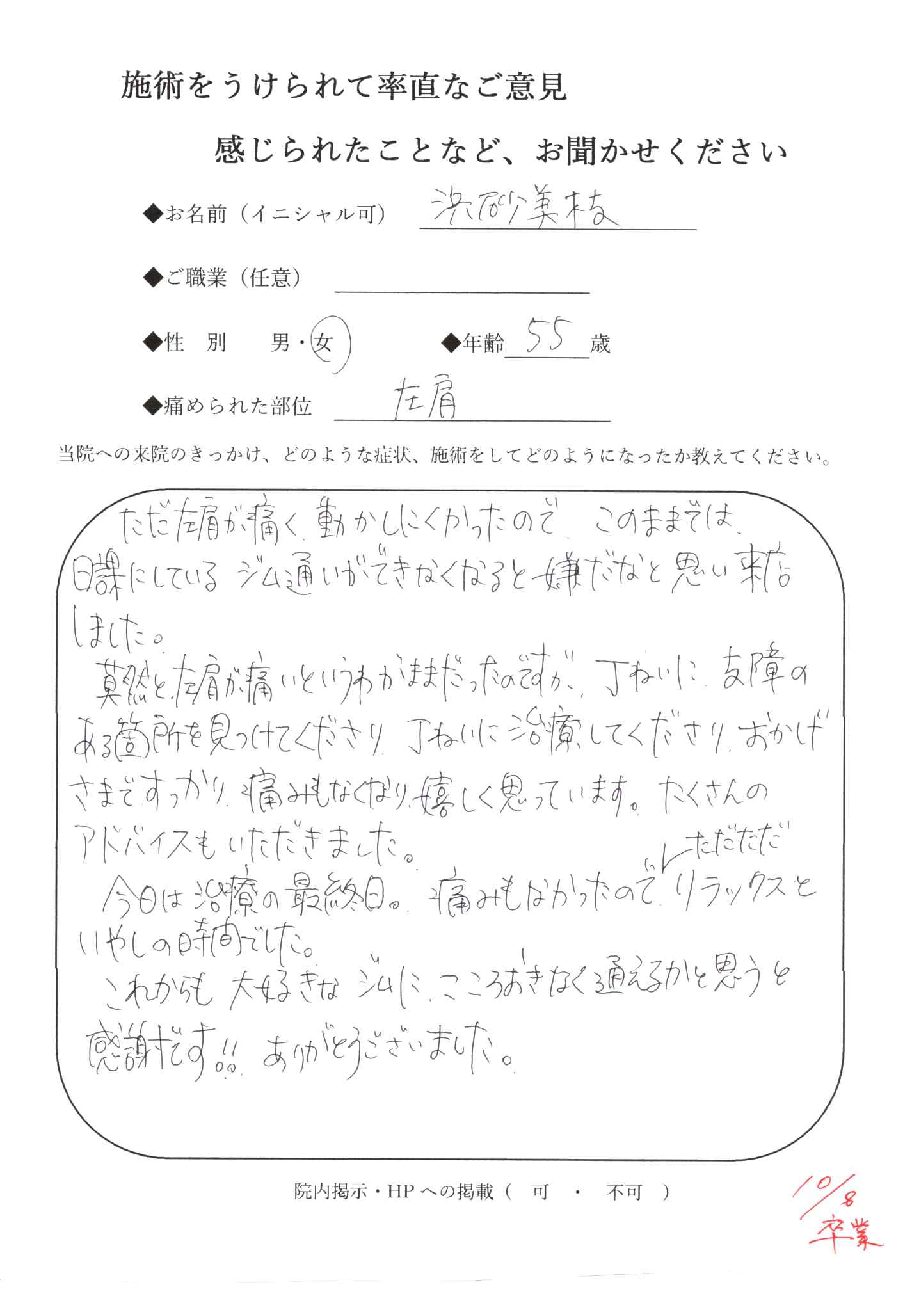 施術をうけられて率直なご意見
感じられたことなど、お聞かせください
◆お名前（イニシャル可） 浜砂美枝
◆ご職業（任意）
◆性　別　　男・女　　◆年齢 55 歳
◆痛められた部位　左肩
当院への来院のきっかけ、どのような症状、施術をしてどのようになったか教えてください。
ただ左肩が痛く、動かしにくかったので、このままでは、
日課にしている ジム通いができなくなると嫌だなと思い来店
しました。
莫然と、左肩が痛いというわがままだったのですが、丁ねいに、支障の
ある箇所を見つけてくださり、丁ねいに治療してくださり、おかげ
さまですっかり、痛みもなくなり、嬉しく思っています。たくさんの
アドバイスもいただきました。
ただただ
今日は治療の最終日。痛みもなかったので、リラックスと
いやしの時間でした。
これからも 大好きな ジムに、こころおきなく通えるかと思うと
感謝です!! ありがとうございました。
院内掲示・HPへの掲載（　可　・　不可　）
10/8
卒業